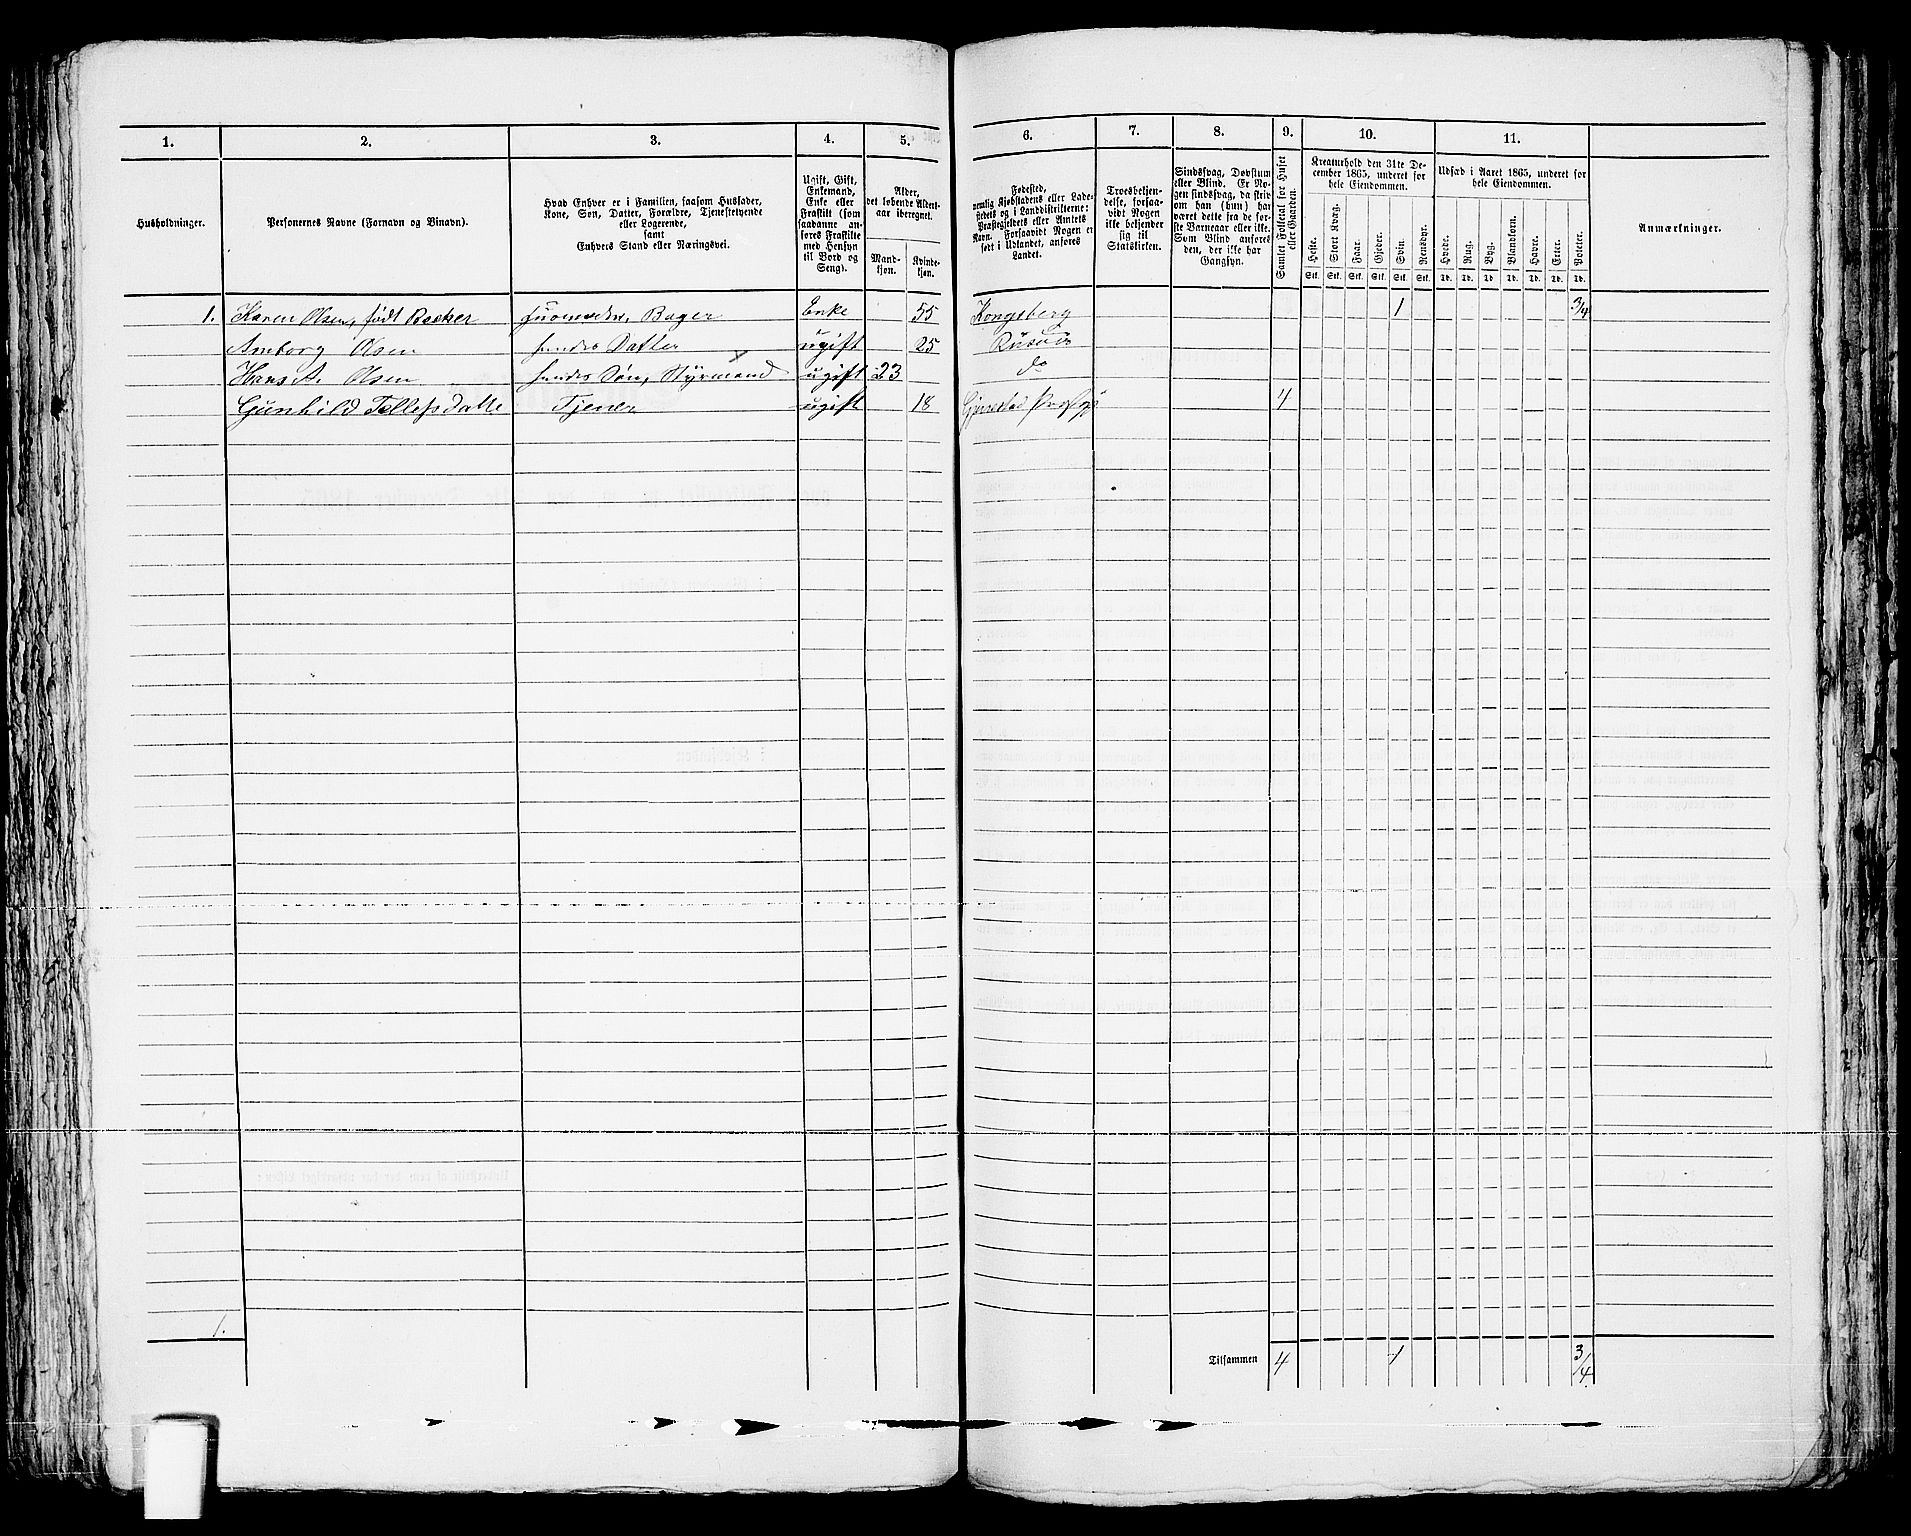 1. 2. 3. 4. 5. 6. 7. 8. 9. 10. 11.
Husholdninger.
Personernes Navne (Fornavn og Binavn).
Hvad Enhver er i Familien, saasom Husfader,
Kone, Søn, Datter, Forældre, Tjenestetyende
eller Logerende,
samt
Enhvers Stand eller Næringsvei.
Ugift, Gift,
Enkemand,
Enke eller
Fraskilt (som
saadanne an-
føres Fraskilte
med Hensyn
til Bord og
Seng).
Alder,
det løbende Alders-
aar iberegnet.
Mand-
kjøn.
Kvinde-
kjøn.
Fødested,
nemlig Kjøbstadens eller Lade-
stedets og i Landdistrikterne:
Præstegjeldets eller Amtets
Navn. Forsaavidt Nogen er
født i Udlandet, anføres
Landet.
Troesbekjen-
delse, forsaa-
vidt Nogen
ikke bekjender
sig til
Statskirken.
Sindssvag, Døvstum
eller Blind. Er No-
gen sindssvag, da skriv
om han (hun) har
været dette fra de før-
ste Barneaar eller ikke.
Som Blind anføres
den, der ikke har
Gangsyn.
Samlet Folketal for Huset
eller Gaarden.
Kreaturhold den 31te De-
cember 1865, underet for
hele Eiendommen.
Heste. Stort Kvæg. Faar. Gjeder. Svin. Rensdyr.
Stk. Stk. Stk. Stk. Stk. Stk.
Udsæd i Aaret 1865, underet for
hele Eiendommen.
Hvede. Rug. Byg. Blandkorn. Havre. Erter. Poteter.
Td. Td. Td. Td. Td. Td. Td.
Anmærkninger.
1. Karen Olsen, født Backer Huusmoder, Bager Enke 55 Kongsberg 1 3/4
Amborg Olsen hendes Datter ugift 25 Risøer
Hans A. Olsen hendes Søn, Styrmand ugift 23 do
Gunhild Tellefsdatte Tjener ugift 18 Gjerestad 4
1.
Tilsammen 4 1 3/4